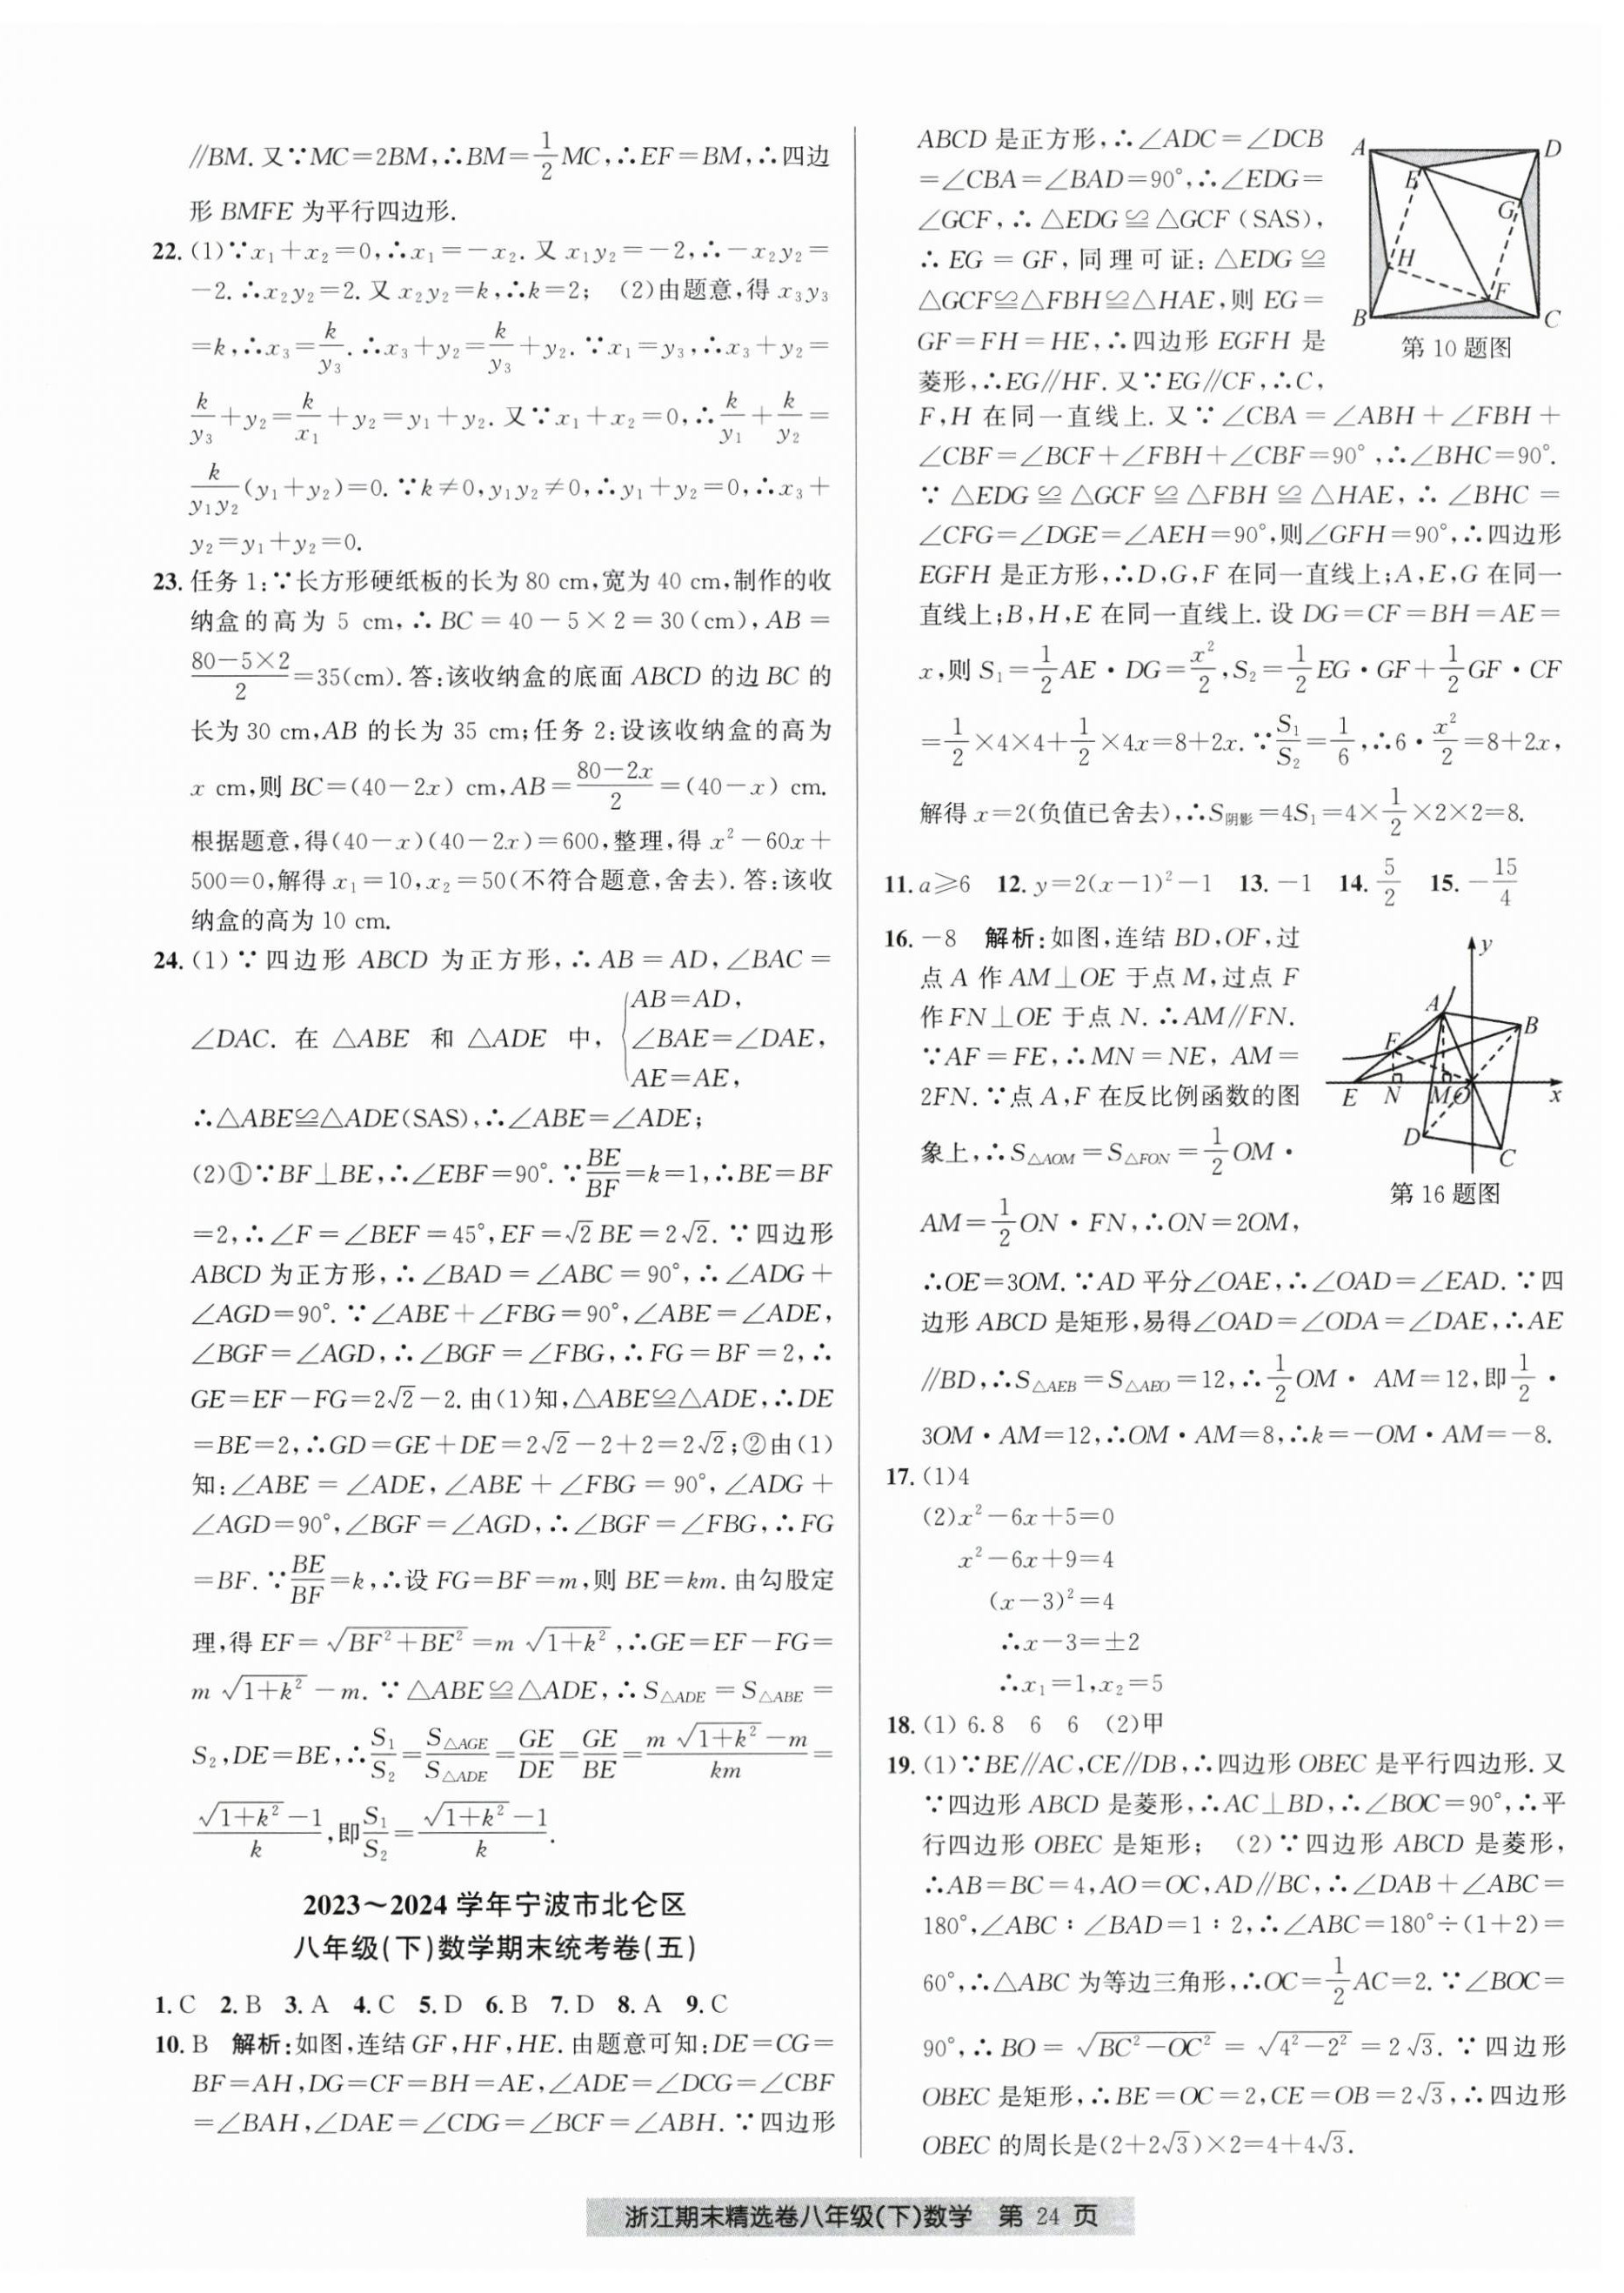 ∥BM. 又∵MC=2BM,∴BM=1/2 MC,∴EF=BM,∴四边
形 BMFE 为平行四边形.
22. (1)∵x₁+x₂=0,∴x₁=-x₂. 又 x₁y₂=-2,∴-x₂y₂=
-2. ∴x₂y₂=2. 又 x₂y₂=k,∴k=2; (2)由题意,得 x₃y₃
=k,∴x₃=k/y₃. ∴x₃+y₂=k/y₃+y₂. ∵x₁=y₃,∴x₃+y₂=
k/y₃+y₂=k/x₁+y₂=y₁+y₂. 又∵x₁+x₂=0,∴k/y₁+k/y₂=
k/(y₁y₂)(y₁+y₂)=0. ∵k≠0,y₁y₂≠0,∴y₁+y₂=0,∴x₃+
y₂=y₁+y₂=0.
23. 任务 1:∵长方形硬纸板的长为 80 cm,宽为 40 cm,制作的收
纳盒的高为 5 cm,∴BC=40-5×2=30(cm),AB=
(80-5×2)/2=35(cm). 答:该收纳盒的底面 ABCD 的边 BC 的
长为 30 cm,AB 的长为 35 cm;任务 2:设该收纳盒的高为
x cm,则 BC=(40-2x) cm,AB=(80-2x)/2=(40-x) cm.
根据题意,得(40-x)(40-2x)=600,整理,得 x²-60x+
500=0,解得 x₁=10,x₂=50(不符合题意,舍去). 答:该收
纳盒的高为 10 cm.
24. (1)∵四边形 ABCD 为正方形,∴AB=AD,∠BAC=
∠DAC. 在 △ABE 和 △ADE 中, {AB=AD,
∠BAE=∠DAE,
AE=AE,
∴△ABE≌△ADE(SAS),∴∠ABE=∠ADE;
(2)①∵BF⊥BE,∴∠EBF=90°. ∵BE/BF=k=1,∴BE=BF
=2,∴∠F=∠BEF=45°,EF=√2BE=2√2. ∵四边形
ABCD 为正方形,∴∠BAD=∠ABC=90°,∴∠ADG+
∠AGD=90°. ∵∠ABE+∠FBG=90°,∠ABE=∠ADE,
∠BGF=∠AGD,∴∠BGF=∠FBG,∴FG=BF=2,∴
GE=EF-FG=2√2-2. 由(1)知,△ABE≌△ADE,∴DE
=BE=2,∴GD=GE+DE=2√2-2+2=2√2;②由(1)
知:∠ABE=∠ADE,∠ABE+∠FBG=90°,∠ADG+
∠AGD=90°,∠BGF=∠AGD,∴∠BGF=∠FBG,∴FG
=BF. ∵BE/BF=k,∴设 FG=BF=m,则 BE=km. 由勾股定
理,得 EF=√(BF²+BE²)=m√(1+k²),∴GE=EF-FG=
m√(1+k²)-m. ∵△ABE≌△ADE,∴S△ADE=S△ABE=
S₂,DE=BE,∴S₁/S₂=S△AGE/S△ADE=GE/DE=GE/BE=(m√(1+k²)-m)/km=
(√(1+k²)-1)/k,即S₁/S₂=(√(1+k²)-1)/k.
2023～2024 学年宁波市北仑区
八年级(下)数学期末统考卷(五)
1. C 2. B 3. A 4. C 5. D 6. B 7. D 8. A 9. C
10. B 解析:如图,连结 GF,HF,HE. 由题意可知:DE=CG=
BF=AH,DG=CF=BH=AE,∠ADE=∠DCG=∠CBF
=∠BAH,∠DAE=∠CDG=∠BCF=∠ABH. ∵四边形
ABCD 是正方形,∴∠ADC=∠DCB
=∠CBA=∠BAD=90°,∴∠EDG=
∠GCF,∴△EDG≌△GCF(SAS),
∴EG=GF,同理可证:△EDG≌
△GCF≌△FBH≌△HAE,则 EG=
GF=FH=HE,∴四边形 EGFH 是
菱形,∴EG∥HF. 又∵EG∥CF,∴C,
A
D
E
G
H
F
B
C
第 10 题图
F,H 在同一直线上. 又∵∠CBA=∠ABH+∠FBH+
∠CBF=∠BCF+∠FBH+∠CBF=90°,∴∠BHC=90°.
∵△EDG≌△GCF≌△FBH≌△HAE,∴∠BHC=
∠CFG=∠DGE=∠AEH=90°,则∠GFH=90°,∴四边形
EGFH 是正方形,∴D,G,F 在同一直线上;A,E,G 在同一
直线上;B,H,E 在同一直线上. 设 DG=CF=BH=AE=
x,则 S₁=1/2 AE·DG=x²/2,S₂=1/2 EG·GF+1/2 GF·CF
=1/2×4×4+1/2×4x=8+2x. ∵S₁/S₂=1/6,∴6·x²/2=8+2x,
解得 x=2(负值已舍去),∴S阴影=4S₁=4×1/2×2×2=8.
11. a≥6 12. y=2(x-1)²-1 13. -1 14. 5/2 15. -15/4
16. -8 解析:如图,连结 BD,OF,过
点 A 作 AM⊥OE 于点 M,过点 F
作 FN⊥OE 于点 N. ∴AM∥FN.
∵AF=FE,∴MN=NE,AM=
2FN. ∵点 A,F 在反比例函数的图
象上,∴S△AOM=S△FON=1/2 OM·
AM=1/2 ON·FN,∴ON=2OM,
y
A
B
F
E
N
M
O
x
D
C
第 16 题图
∴OE=3OM. ∵AD 平分∠OAE,∴∠OAD=∠EAD. ∵四
边形 ABCD 是矩形,易得∠OAD=∠ODA=∠DAE,∴AE
∥BD,∴S△AEB=S△AEO=12,∴1/2 OM· AM=12,即1/2·
3OM·AM=12,∴OM·AM=8,∴k=-OM·AM=-8.
17. (1)4
(2)x²-6x+5=0
x²-6x+9=4
(x-3)²=4
∴x-3=±2
∴x₁=1,x₂=5
18. (1) 6.8 6 6 (2)甲
19. (1)∵BE∥AC,CE∥DB,∴四边形 OBEC 是平行四边形. 又
∵四边形 ABCD 是菱形,∴AC⊥BD,∴∠BOC=90°,∴平
行四边形 OBEC 是矩形; (2)∵四边形 ABCD 是菱形,
∴AB=BC=4,AO=OC,AD∥BC,∴∠DAB+∠ABC=
180°,∠ABC∶∠BAD=1∶2,∴∠ABC=180°÷(1+2)=
60°,∴△ABC 为等边三角形,∴OC=1/2 AC=2. ∵∠BOC=
90°,∴BO=√(BC²-OC²)=√(4²-2²)=2√3. ∵四边形
OBEC 是矩形,∴BE=OC=2,CE=OB=2√3,∴四边形
OBEC 的周长是(2+2√3)×2=4+4√3.
浙江期末精选卷八年级(下)数学 第 24 页